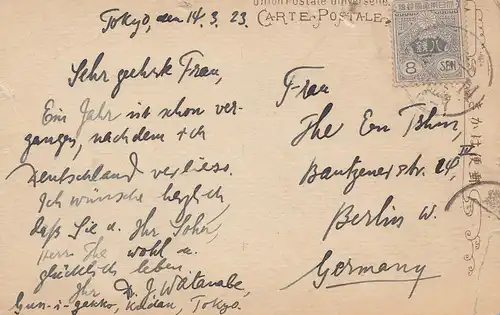 Tokyo, den 14. 3. 23.
Union Postale Universelle.
CARTE-POSTALE.
8 SEN
Sehr geehrte Frau,
Ein Jahr ist schon ver-
gangen, nachdem ich
Deutschland verliess.
Ich wünsche herzlich,
daß Sie u. Ihr Sohn,
Herr Ihe wohl u.
glücklich leben
Ihr J. Watanabe,
Gun-i-gakko, Tokyo.
Frau
Ihe En Tshin,
Bautzenerstr. 24 IV
Berlin W.
Germany